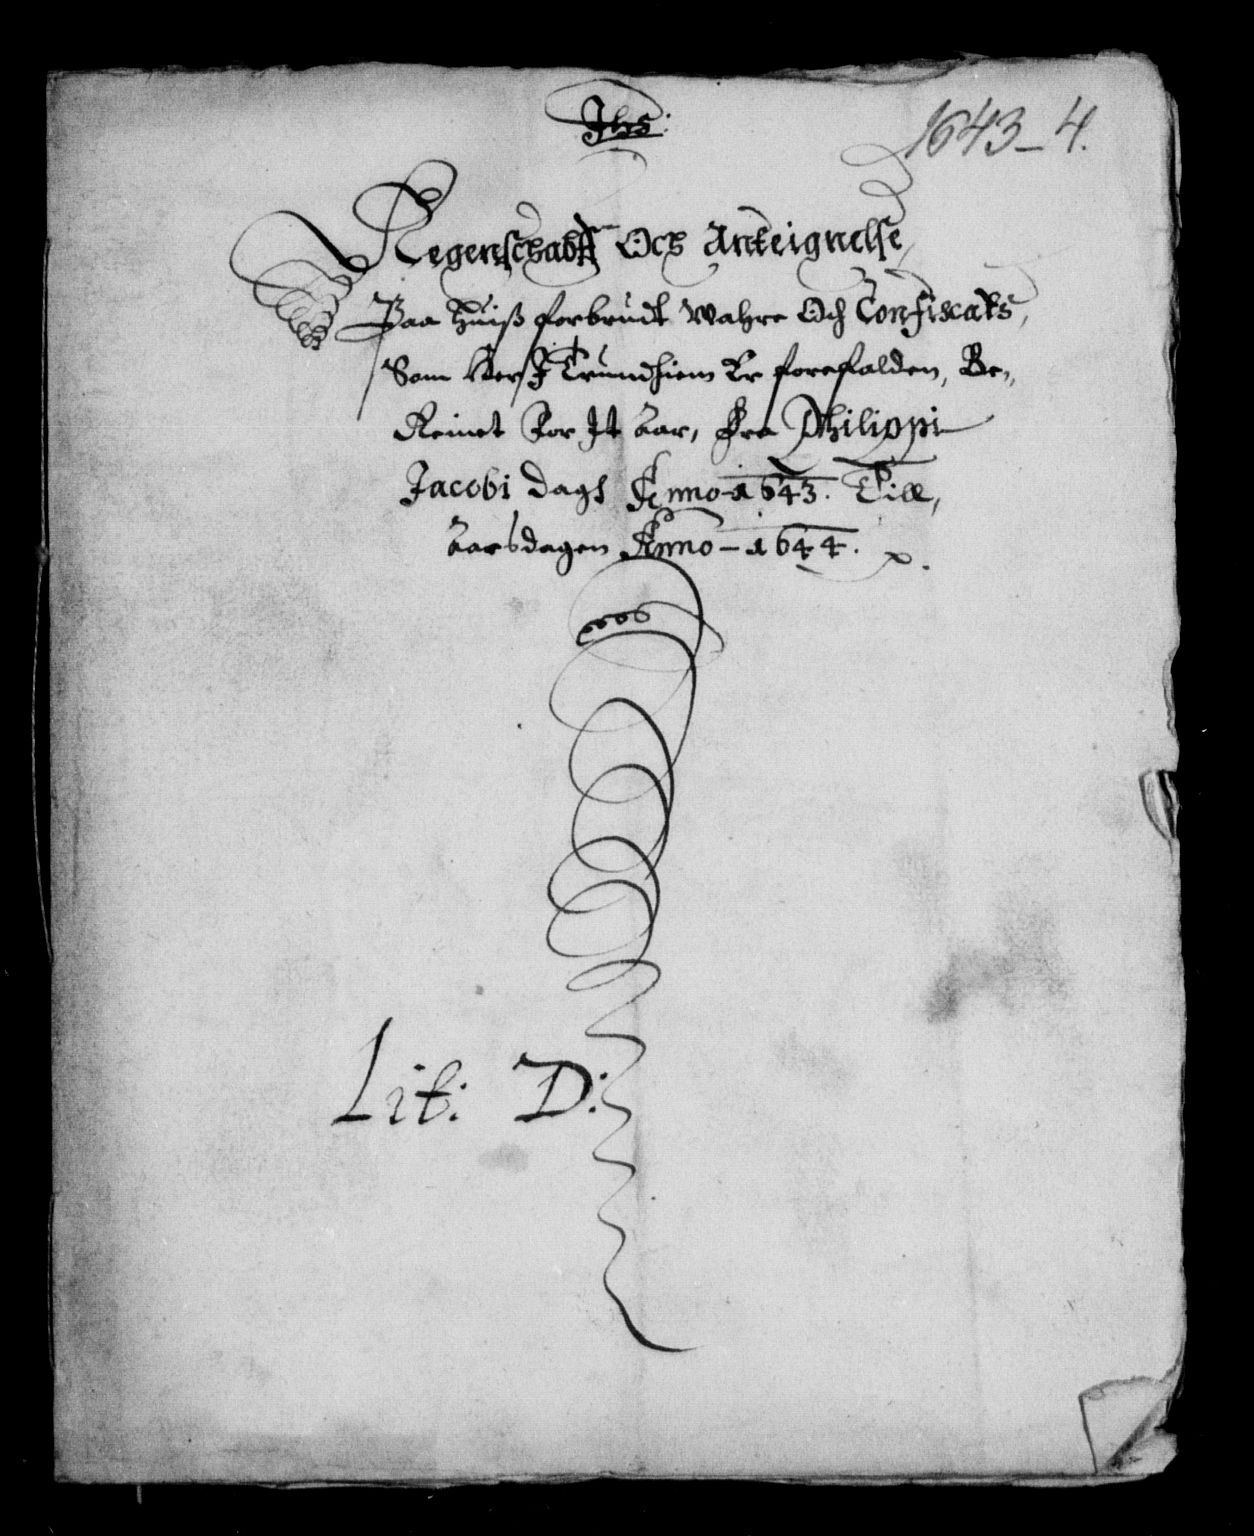 Jhs:
1643_4.
Regenschabff Och Anteignelse,
Paa huiß forbrudt Wahre Och Confiscats,
Som Her J Trundhiem Er forefalden, Be„
Reinet For Jt Aar, Fra Philippi
Jacobi Dags Anno 1643. Till,
Aarsdagen Anno – 1644.
Lit: D: